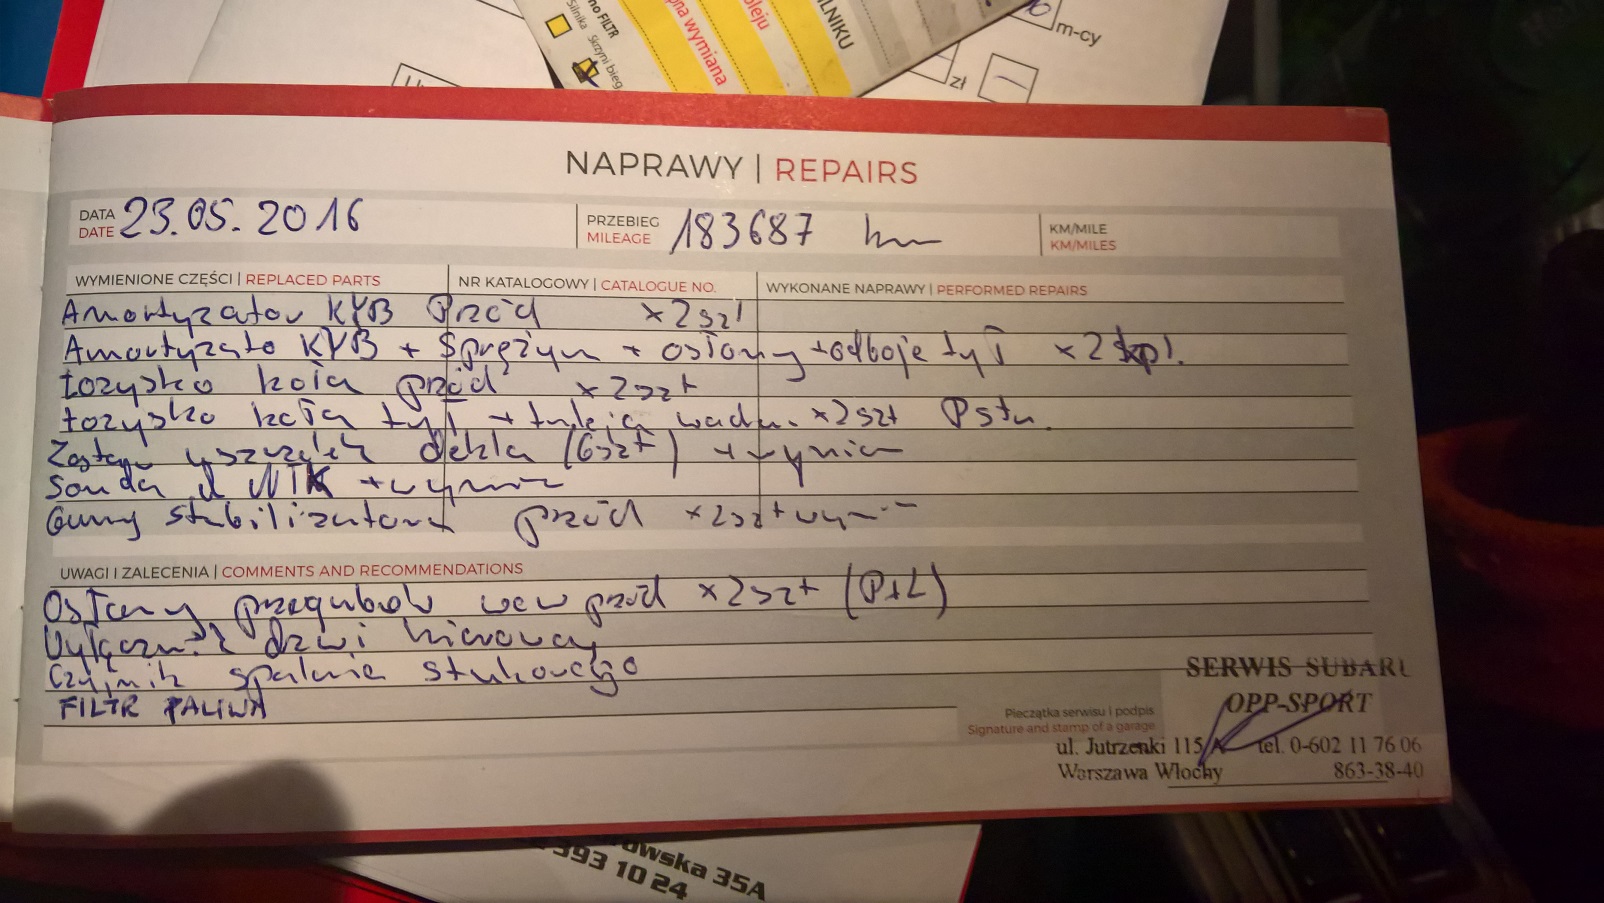 no FILTR
Silnika
Skrzyni bieg
pna wymiana
oleju
ILNIKU
m-cy
zł
NAPRAWY | REPAIRS
DATA 23.05.2016 PRZEBIEG 183687 km KM/MILE
DATE MILEAGE KM/MILES
WYMIENIONE CZĘŚCI | REPLACED PARTS NR KATALOGOWY | CATALOGUE NO. WYKONANE NAPRAWY | PERFORMED REPAIRS
Amortyzator KYB Przód x2szt
Amortyzato KYB + Sprężyn + osłony + odboje tył x2kpl.
Łozysko koła przód x2szt
Łozysko koła tył + tuleja x2szt
Zestaw uszczelek dekla (6szt) +
Sonda NTK +
Gumy stabilizatora przód x2szt
UWAGI I ZALECENIA | COMMENTS AND RECOMMENDATIONS
Osłony przegubów wew przód x2szt (P+L)
Wyłącznik drzwi kierowcy
Czujnik spalania stukowego
FILTR PALIWA
SERWIS SUBARU
OPP-SPORT
Pieczątka serwisu i podpis
Signature and stamp of a garage
ul. Jutrzenki 115 tel. 0-602 11 76 06
Warszawa Włochy 863-38-40
owska 35A
393 10 24